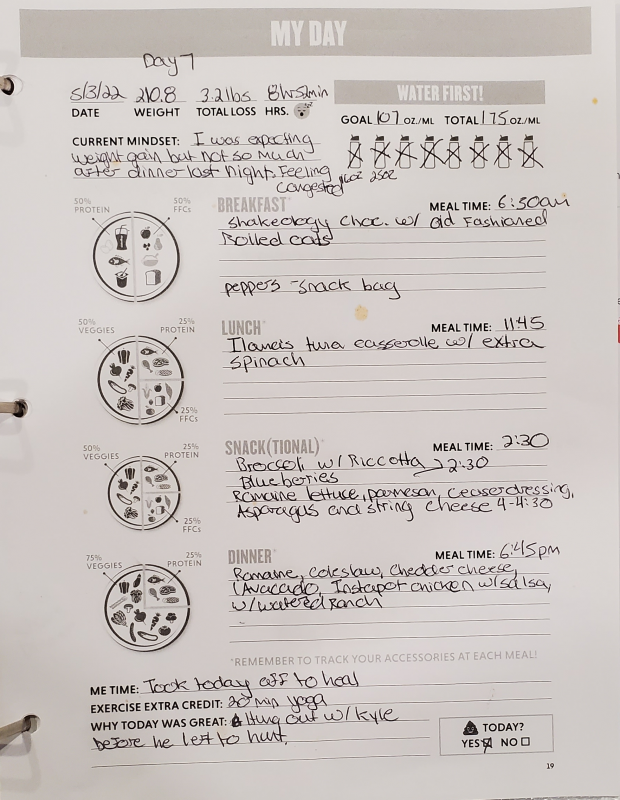 MY DAY
Day 7
5/3/22 210.8 3.2lbs 8hrs2min
DATE WEIGHT TOTAL LOSS HRS.
WATER FIRST!
GOAL 107 OZ./ML TOTAL 175 OZ./ML
CURRENT MINDSET: I was expecting
weight gain but not so much
after dinner last night. Feeling
Congested
16oz 25oz
50% PROTEIN
50% FFCs
BREAKFAST* MEAL TIME: 6:50am
Shakeology Choc. w/ Old Fashioned
Rolled oats
peppers - snack bag
50% VEGGIES
25% PROTEIN
25% FFCs
LUNCH* MEAL TIME: 11:45
tuna casserolle w/ extra
Spinach
50% VEGGIES
25% PROTEIN
25% FFCs
SNACK(TIONAL)* MEAL TIME: 2:30
Broccoli w/ Riccotta 2:30
Blueberries
Romaine lettuce, parmesan, ceaser dressing,
Asparagus and string cheese 4-4:30
75% VEGGIES
25% PROTEIN
DINNER* MEAL TIME: 6:45pm
Romaine, Coleslaw, Chedder cheese,
Avacado, Instapot chicken w/salsa,
w/watered Ranch
*REMEMBER TO TRACK YOUR ACCESSORIES AT EACH MEAL!
ME TIME: Took today off to heal
EXERCISE EXTRA CREDIT: 20 min yoga
WHY TODAY WAS GREAT: Hung out w/ Kyle
before he left to hunt,
TODAY?
YES NO
19